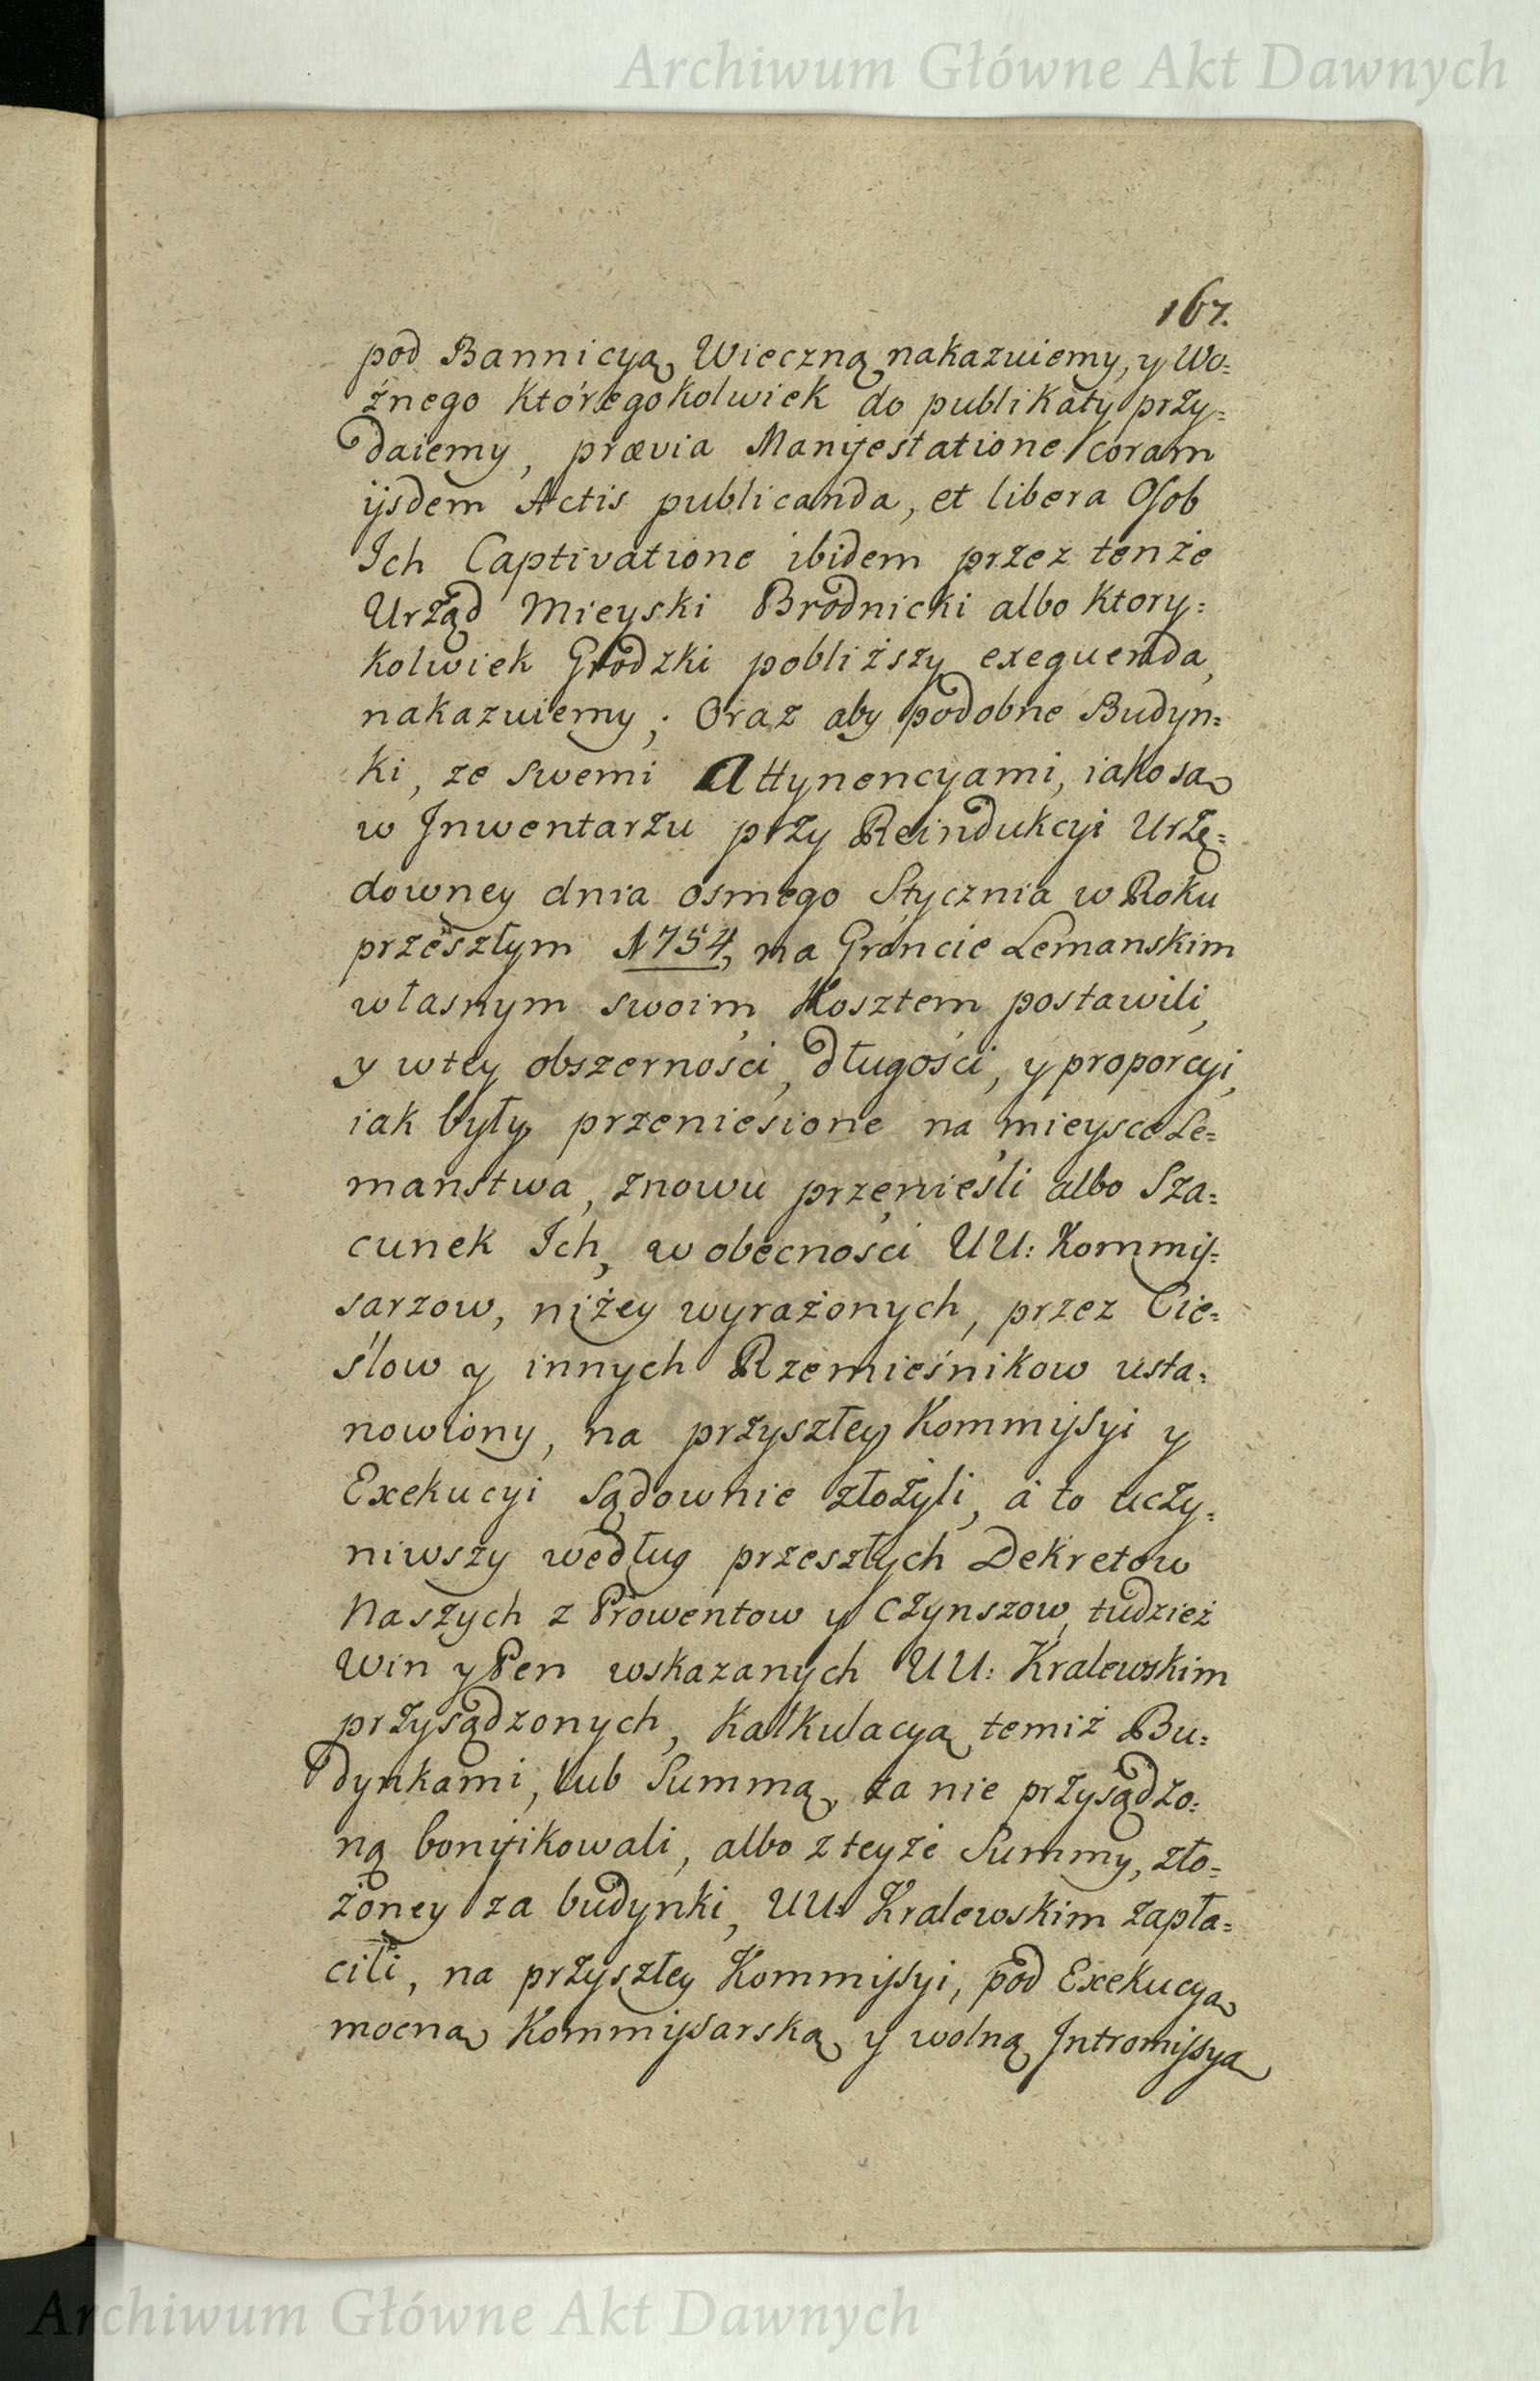 Archiwum Główne Akt Dawnych
167.
pod Bannicyą Wieczną nakazuiemy, y Wo=
źnego któregokolwiek do publikaty przy=
daiemy, prævia Manifestatione coram
ijsdem Actis publicanda, et libera Osob
Ich Captivatione ibidem przez tenże
Urząd Mieyski Brodnicki albo ktory=
kolwiek Grodzki pobliższy exequenda,
nakazuiemy; Oraz aby podobne Budyn=
ki, ze swemi Attynencyami, iako są
w Inwentarzu przy Reindukcyi Urzę=
downey dnia osmego Stycznia w Roku
przeszłym 1754, na Groncie Lemanskim
własnym swoim Kosztem postawili,
y w tey obszerności, długości, y proporcyi,
iak były przeniesione na mieysce Le=
manstwa, znowu przenieśli albo Sza=
cunek Ich, w obecności UU: Kommis=
sarzow, niżey wyrażonych, przez Cie=
ślow y innych Rzemieśnikow usta=
nowiony, na przyszłey Kommissyi y
Exekucyi Sądownie złożyli, a to uczy=
niwszy według przeszłych Dekretow
Naszych z Prowentow y Czynszow, tudzież
Win y Pen wskazanych UU: Kralewskim
przysądzonych, Kalkulacyą temiż Bu=
dynkami, lub Summą, za nie przysądzo=
ną bonifikowali, albo z teyże Summy, zło=
żoney za budynki, UU: Kralewskim zapła=
cili, na przyszłey Kommissyi, pod Exekucyą
mocną Kommissarską y wolną Intromissyą
Archiwum Główne Akt Dawnych